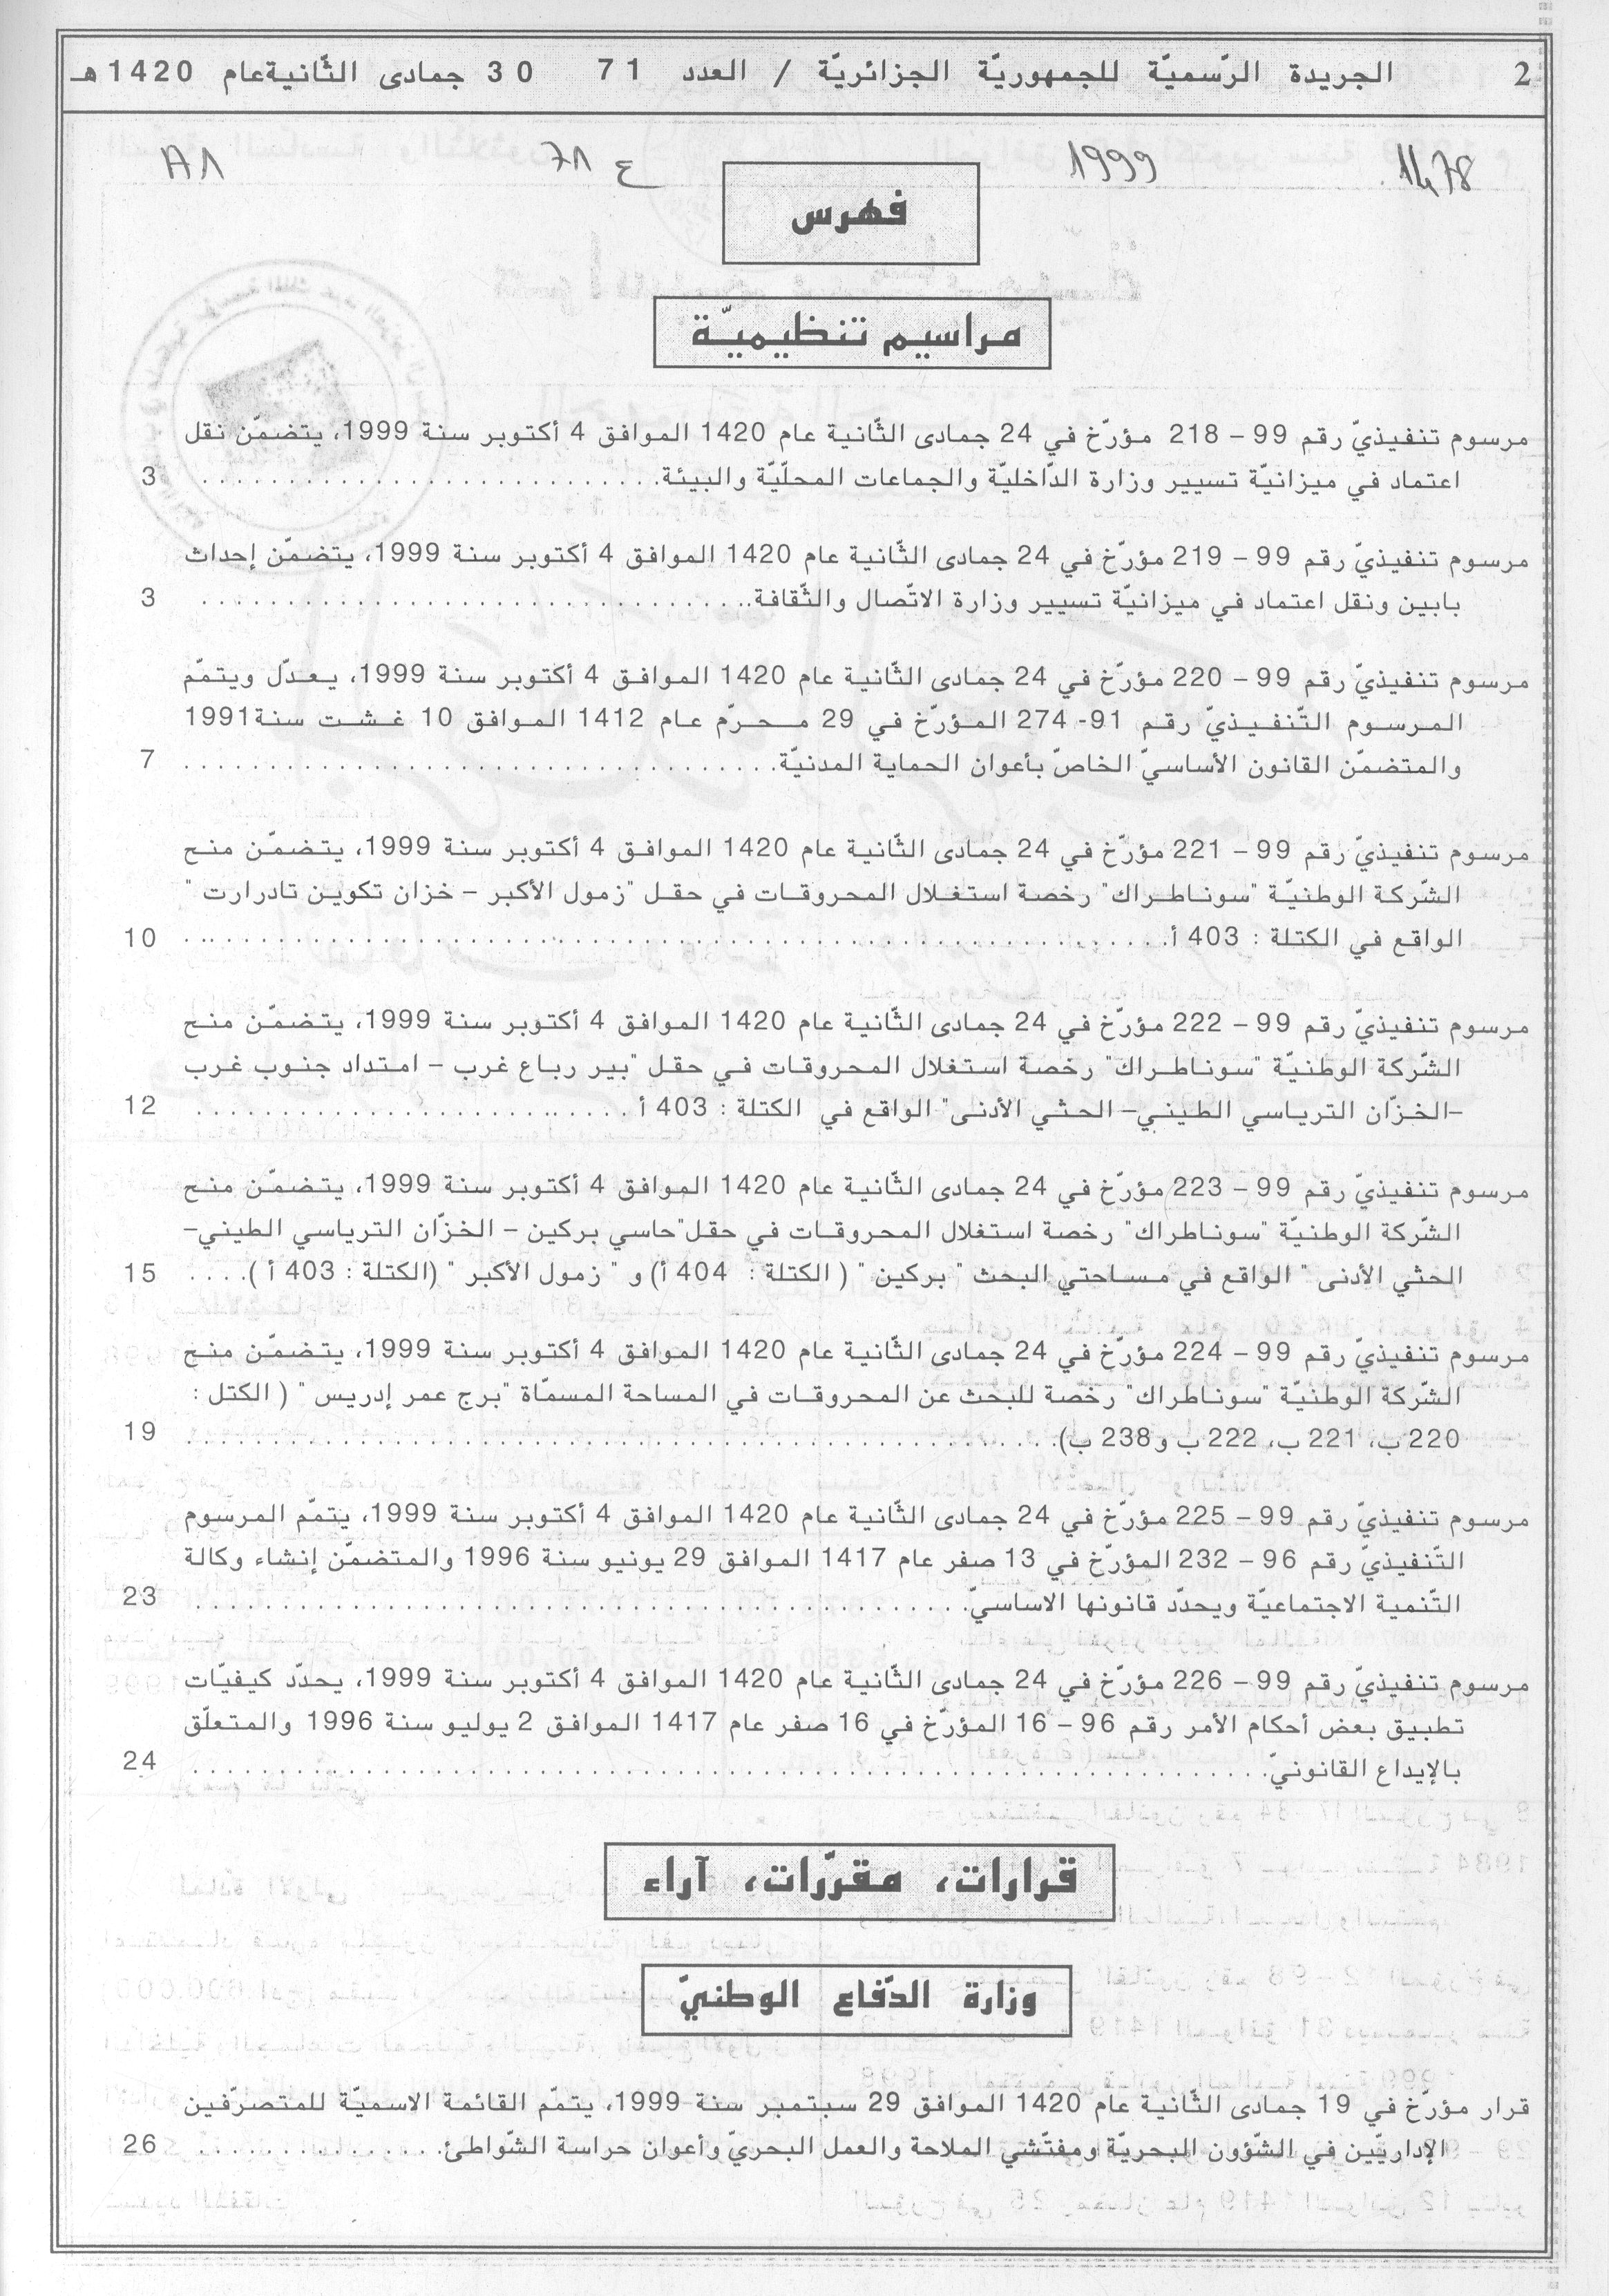 2 الجريدة الرّسميّة للجمهوريّة الجزائريّة / العدد 71 30 جمادى الثّانية عام 1420 هـ
1478 1999 ع 71 A1
فهرس
مراسيم تنظيميّة
مرسوم تنفيذيّ رقم 99 – 218 مؤرّخ في 24 جمادى الثّانية عام 1420 الموافق 4 أكتوبر سنة 1999، يتضمّن نقل
اعتماد في ميزانيّة تسيير وزارة الدّاخليّة والجماعات المحلّيّة والبيئة. 3
مرسوم تنفيذيّ رقم 99 – 219 مؤرّخ في 24 جمادى الثّانية عام 1420 الموافق 4 أكتوبر سنة 1999، يتضمّن إحداث
بابين ونقل اعتماد في ميزانيّة تسيير وزارة الاتّصال والثّقافة. 3
مرسوم تنفيذيّ رقم 99 – 220 مؤرّخ في 24 جمادى الثّانية عام 1420 الموافق 4 أكتوبر سنة 1999، يعدّل ويتمّم
المرسوم التّنفيذيّ رقم 91- 274 المؤرّخ في 29 محرّم عام 1412 الموافق 10 غشت سنة 1991
والمتضمّن القانون الأساسيّ الخاصّ بأعوان الحماية المدنيّة. 7
مرسوم تنفيذيّ رقم 99 – 221 مؤرّخ في 24 جمادى الثّانية عام 1420 الموافق 4 أكتوبر سنة 1999، يتضمّن منح
الشّركة الوطنيّة "سوناطراك" رخصة استغلال المحروقات في حقل "زمول الأكبر – خزان تكوين تادرارت "
الواقع في الكتلة : 403 أ. 10
مرسوم تنفيذيّ رقم 99 – 222 مؤرّخ في 24 جمادى الثّانية عام 1420 الموافق 4 أكتوبر سنة 1999، يتضمّن منح
الشّركة الوطنيّة "سوناطراك" رخصة استغلال المحروقات في حقل "بير رباع غرب – امتداد جنوب غرب
–الخزّان الترياسي الطيني– الحثي الأدنى" الواقع في الكتلة : 403 أ . 12
مرسوم تنفيذيّ رقم 99 – 223 مؤرّخ في 24 جمادى الثّانية عام 1420 الموافق 4 أكتوبر سنة 1999، يتضمّن منح
الشّركة الوطنيّة "سوناطراك" رخصة استغلال المحروقات في حقل"حاسي بركين – الخزّان الترياسي الطيني–
الحثي الأدنى " الواقع في مساحتي البحث " بركين " ( الكتلة : 404 أ) و " زمول الأكبر " (الكتلة : 403 أ ). 15
مرسوم تنفيذيّ رقم 99 – 224 مؤرّخ في 24 جمادى الثّانية عام 1420 الموافق 4 أكتوبر سنة 1999، يتضمّن منح
الشّركة الوطنيّة "سوناطراك" رخصة للبحث عن المحروقات في المساحة المسمّاة "برج عمر إدريس " ( الكتل :
220 ب، 221 ب، 222 ب و238 ب). 19
مرسوم تنفيذيّ رقم 99 – 225 مؤرّخ في 24 جمادى الثّانية عام 1420 الموافق 4 أكتوبر سنة 1999، يتمّم المرسوم
التّنفيذيّ رقم 96 – 232 المؤرّخ في 13 صفر عام 1417 الموافق 29 يونيو سنة 1996 والمتضمّن إنشاء وكالة
التّنمية الاجتماعيّة ويحدّد قانونها الاساسيّ. 23
مرسوم تنفيذيّ رقم 99 – 226 مؤرّخ في 24 جمادى الثّانية عام 1420 الموافق 4 أكتوبر سنة 1999، يحدّد كيفيّات
تطبيق بعض أحكام الأمر رقم 96 – 16 المؤرّخ في 16 صفر عام 1417 الموافق 2 يوليو سنة 1996 والمتعلّق
بالإيداع القانونيّ. 24
قرارات، مقرّرات، آراء
وزارة الدّفاع الوطنيّ
قرار مؤرّخ في 19 جمادى الثّانية عام 1420 الموافق 29 سبتمبر سنة 1999، يتمّم القائمة الاسميّة للمتصرّفين
الإداريّين في الشّؤون البحريّة ومفتّشي الملاحة والعمل البحريّ وأعوان حراسة الشّواطئ. 26